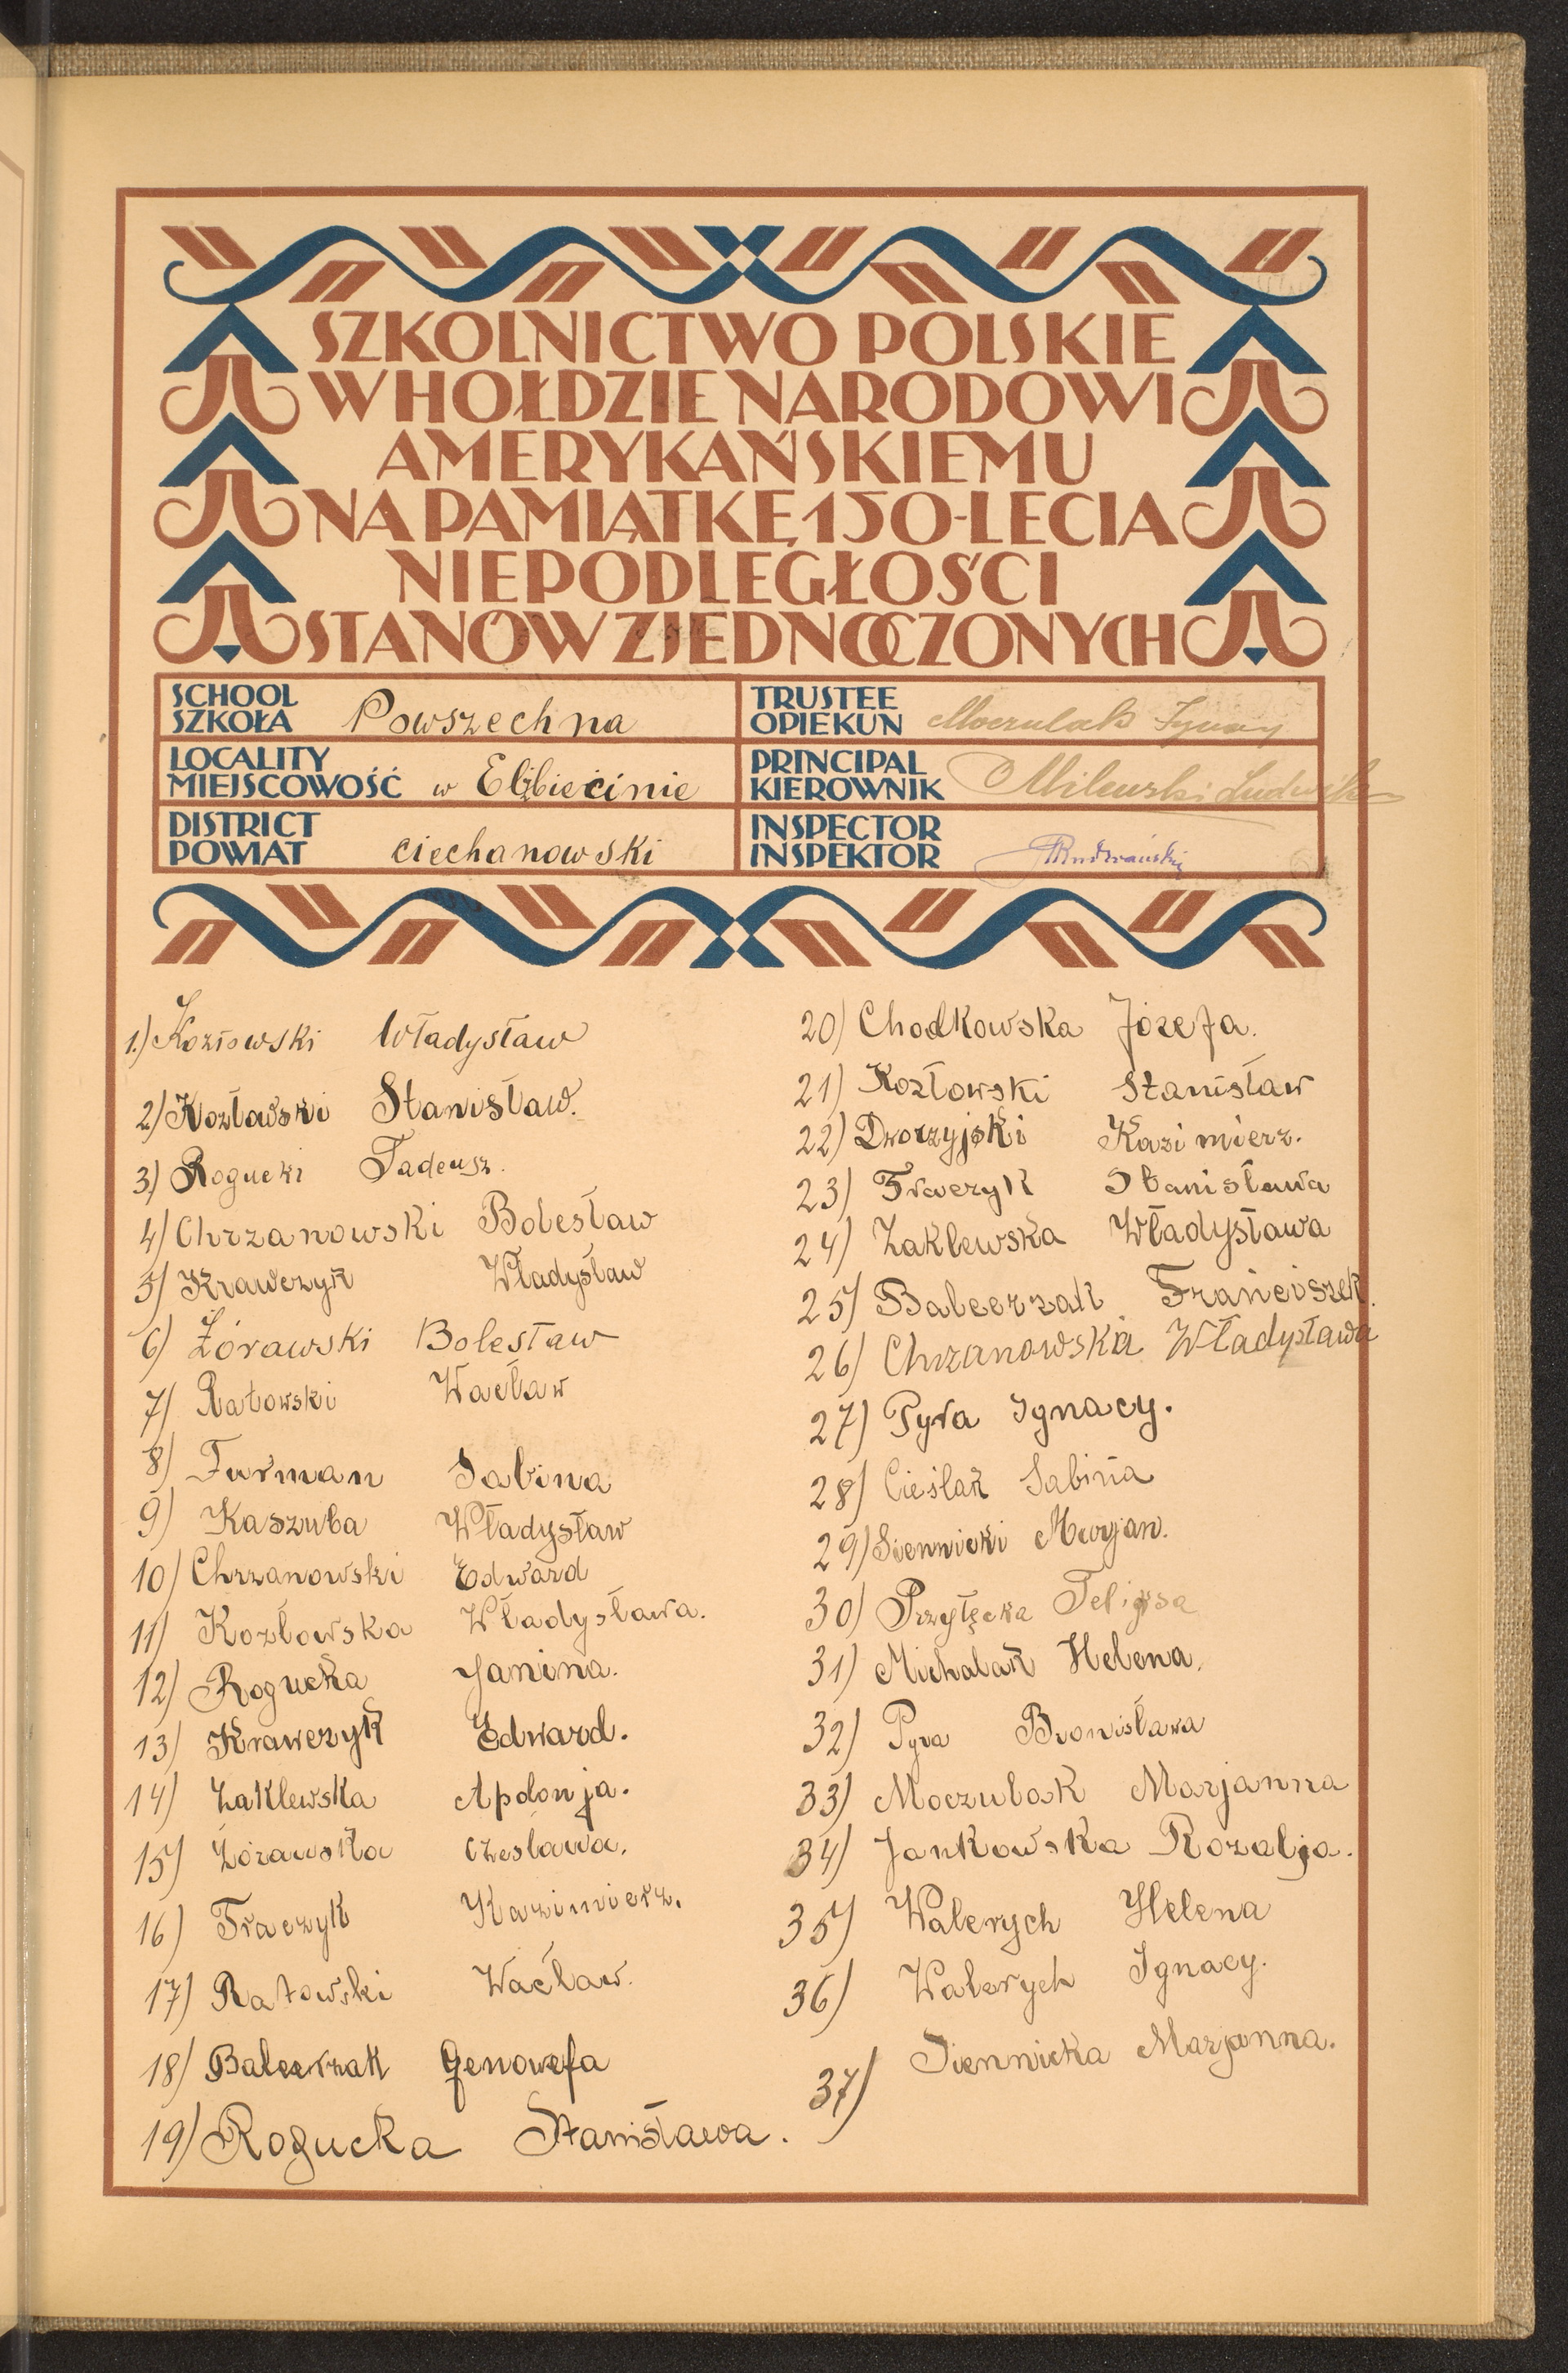 SZKOLNICTWO POLSKIE
W HOŁDZIE NARODOWI
AMERYKAŃSKIEMU
NA PAMIĄTKĘ 150-LECIA
NIEPODLEGŁOŚCI
STANÓW ZJEDNOCZONYCH
SCHOOL
SZKOŁA Powszechna
TRUSTEE
OPIEKUN Moczulak Ignacy
LOCALITY
MIEJSCOWOŚĆ w Elżbiecinie
PRINCIPAL
KIEROWNIK Milewski Ludwik
DISTRICT
POWIAT ciechanowski
INSPECTOR
INSPEKTOR
1.) Kozłowski Władysław
2) Kozławski Stanisław.
3) Rogucki Tadeusz.
4) Chrzanowski Bolesław
5) Krawczyk Władysław
6) Żórawski Bolesław
7) Ratowski Wacław
8) Furman Sabina
9) Kaszuba Władysław
10) Chrzanowski Edward
11) Kozłowska Władysława.
12) Rogucka Janina.
13) Krawczyk Edward.
14) Żaklewska Apolonja.
15) Żórawska Czesława.
16) Traczyk Kazimierz.
17) Ratowski Wacław.
18) Balcerzak Genowefa
19) Rogucka Stanisława.
20) Chodkowska Józefa.
21) Kozłowski Stanisław
22) Dworzyjski Kazimierz.
23) Traczyk Stanisława
24) Żaklewska Władysława
25) Balcerzak Franciszek.
26) Chrzanowska Władysława
27) Pyra Ignacy.
28) Cieślak Sabina
29) Siennicki Maryjan.
30) Przyłęcka Feliksa
31) Michalak Helena.
32) Pyra Bronisława
33) Moczulak Marjanna
34) Jankowska Rozalja.
35) Walerych Helena
36) Walerych Ignacy.
37) Siennicka Marjanna.